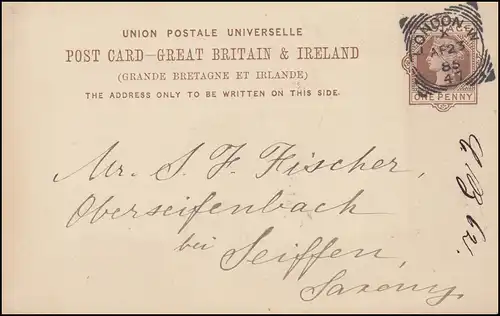 UNION POSTALE UNIVERSELLE
POST CARD—GREAT BRITAIN & IRELAND
(GRANDE BRETAGNE ET IRLANDE)
THE ADDRESS ONLY TO BE WRITTEN ON THIS SIDE.
LONDON·W
X
AP23
85
47
ONE PENNY
Mr. S. F. Fischer,
Oberseifenbach
bei
Seiffen,
Saxony
62.